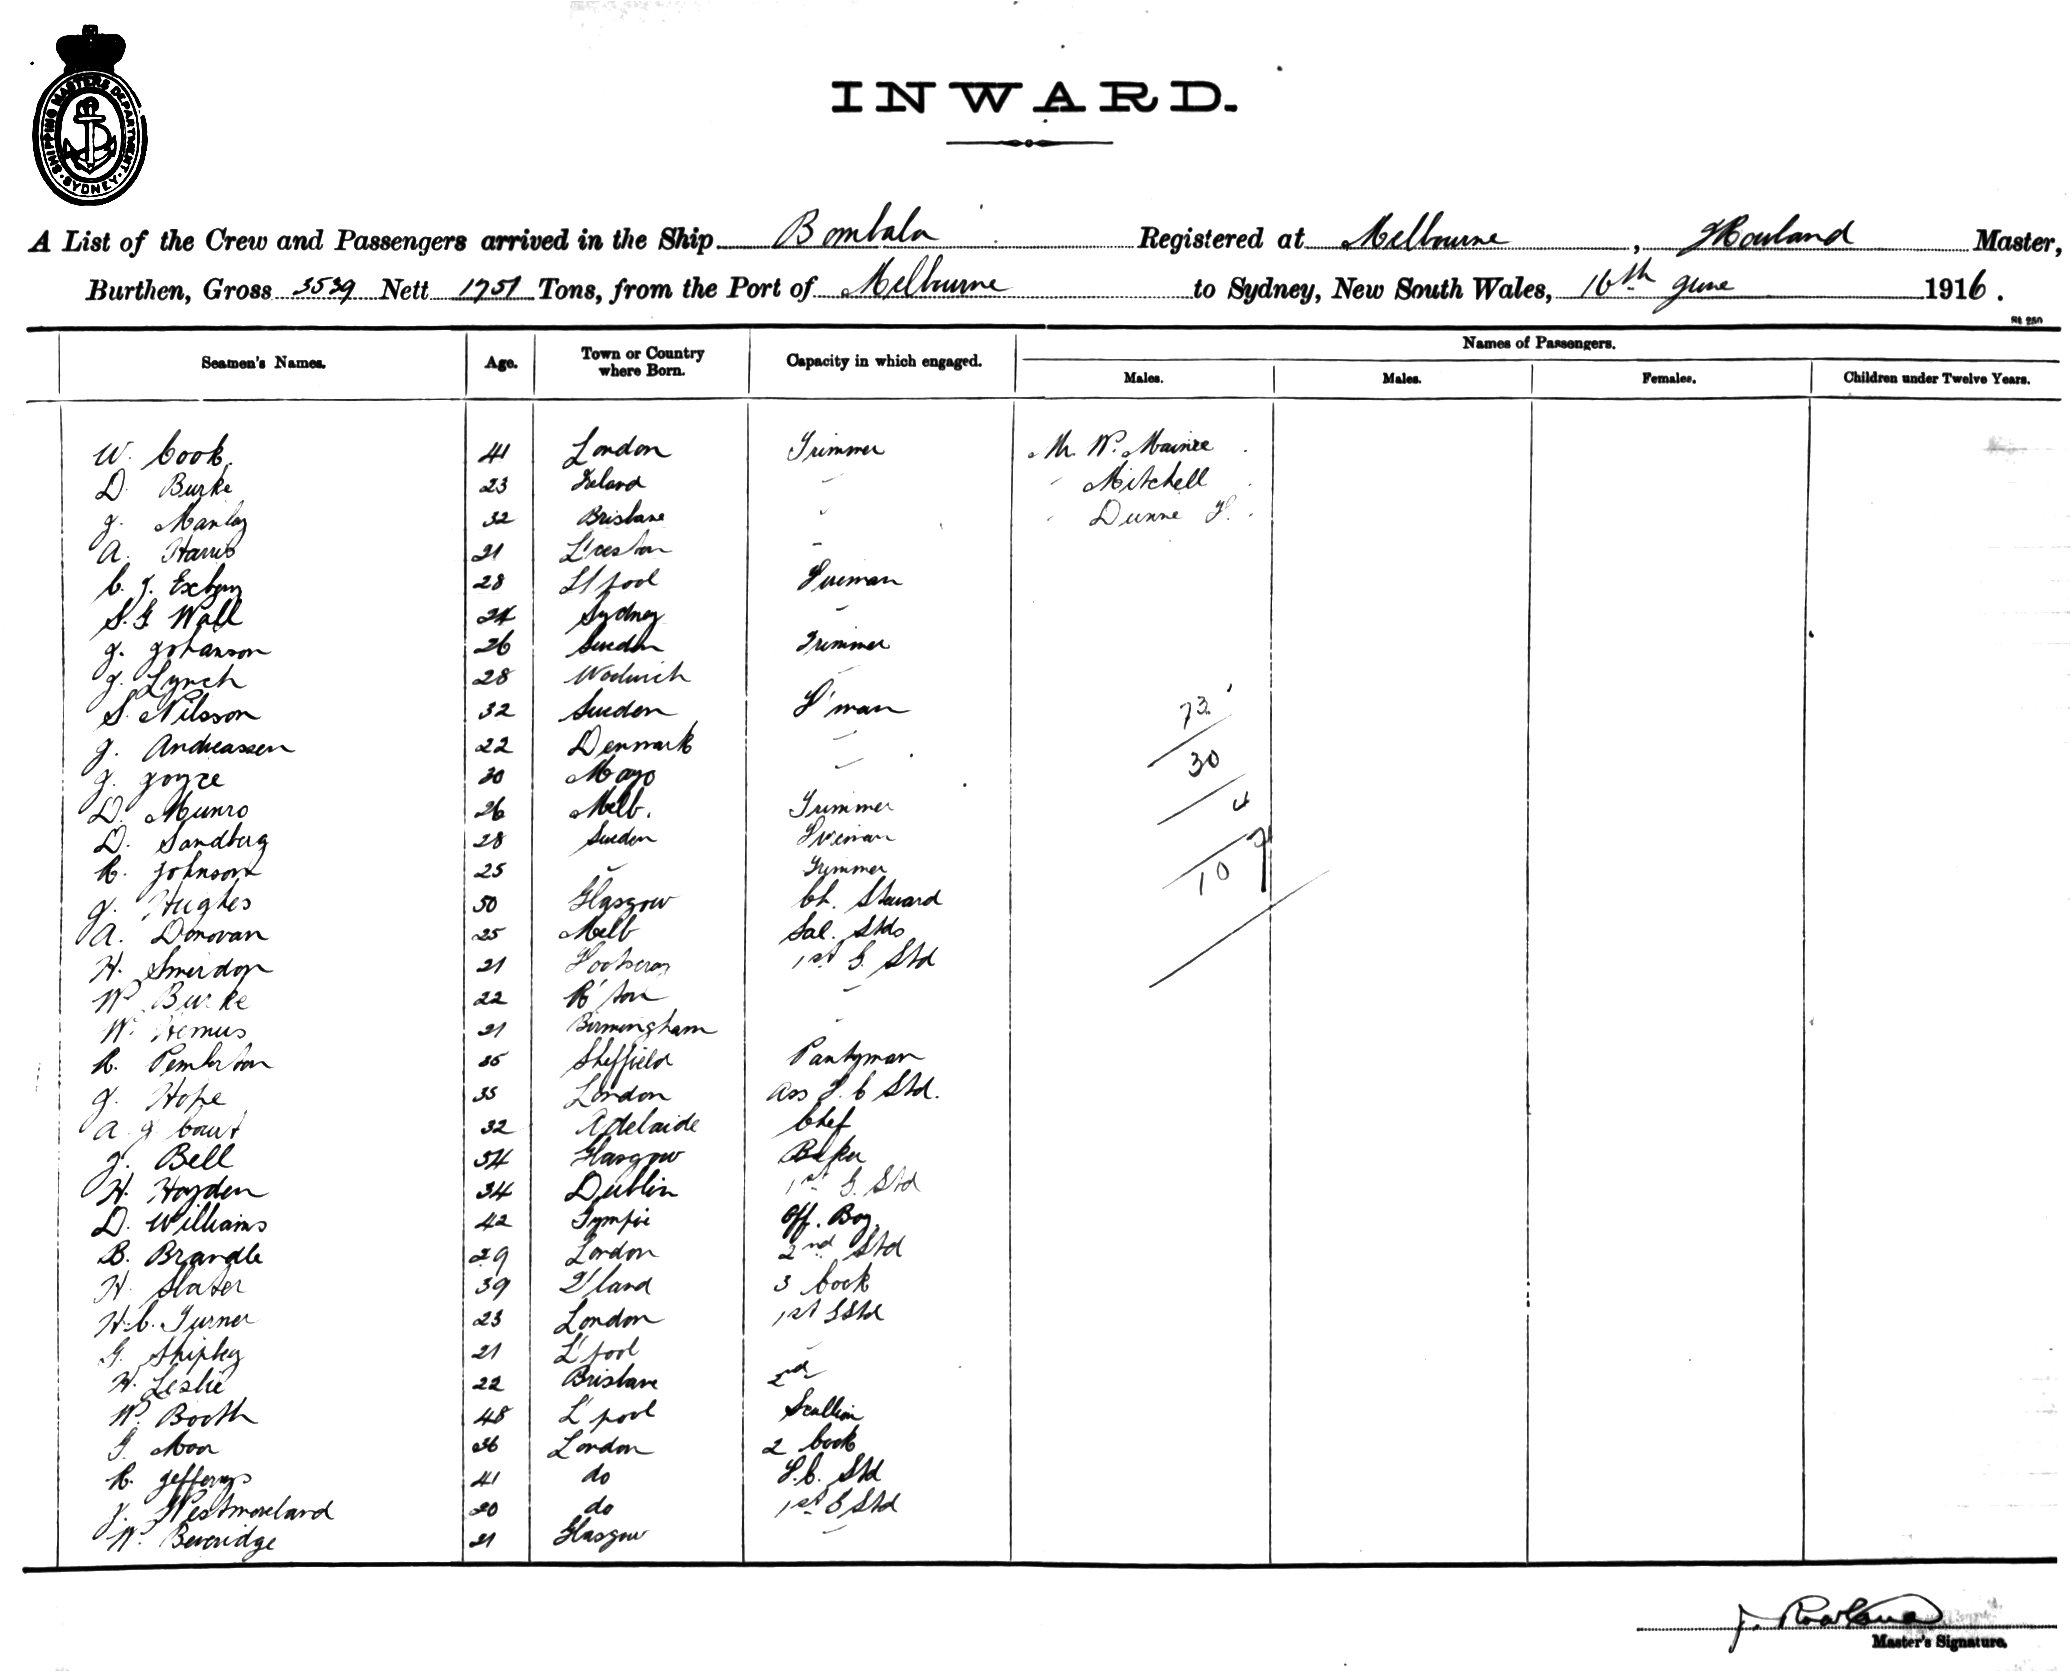 SHIPPING MASTERS DEPARTMENT · SYDNEY ·
INWARD.
A List of the Crew and Passengers arrived in the Ship Bombala Registered at Melbourne, J Rowland Master,
Burthen, Gross 3539 Nett 1751 Tons, from the Port of Melbourne to Sydney, New South Wales, 16th June 1916.
St 250
Seamen's Names. Age. Town or Country where Born. Capacity in which engaged. Names of Passengers.
Males. Males. Females. Children under Twelve Years.
W. Cook 41 London Trimmer Mr. W.
D. Burke 23 Ireland " " Mitchell
J. Manley 32 Brisbane " " Dunne F.
A. Harris 21 L'ceston "
C. J. 28 L'pool Fireman
S. G Wall 24 Sydney "
J. Johanson 26 Sweden Trimmer
J. Lynch 28 Woolwich "
S. Nilsson 32 Sweden F'man 73
J. Andreassen 22 Denmark "
J. Joyce 30 Mayo " 30
D. Munro 26 Melb. Trimmer 4
D. Sandberg 28 Sweden Fireman
R. Johnson 25 " Trimmer 107
J. Hughes 50 Glasgow Ch. Steward
A. Donovan 25 Melb Sal. Stds
H. Smerdon 21 Footscray 1st S. Std
W. Burke 22 R'ton "
W. Hemus 21 Birmingham "
R. Pemberton 35 Sheffield Pantyman
J. Hope 35 London Ass F. C Std.
A. J Cout 32 Adelaide Chef
J. Bell 54 Glasgow Baker
H. Hayden 34 Dublin 1st S. Std
D. Williams 42 Gympie Off. Boy
B. Brandle 29 London 2nd Std
H. Slater 39 Q'land 3 Cook
H. C. Turner 23 London 1st S Std
G. Shipley 21 L'pool "
H. Leslie 22 Brisbane 2nd
W. Booth 48 L'pool Scullion
G. 36 London 2 Cook
R. Jefferys 41 do F.C. Std
J. Westmoreland 20 do 1st S Std
W. Beveridge 21 Glasgow "
J. Rowland
Master's Signature.